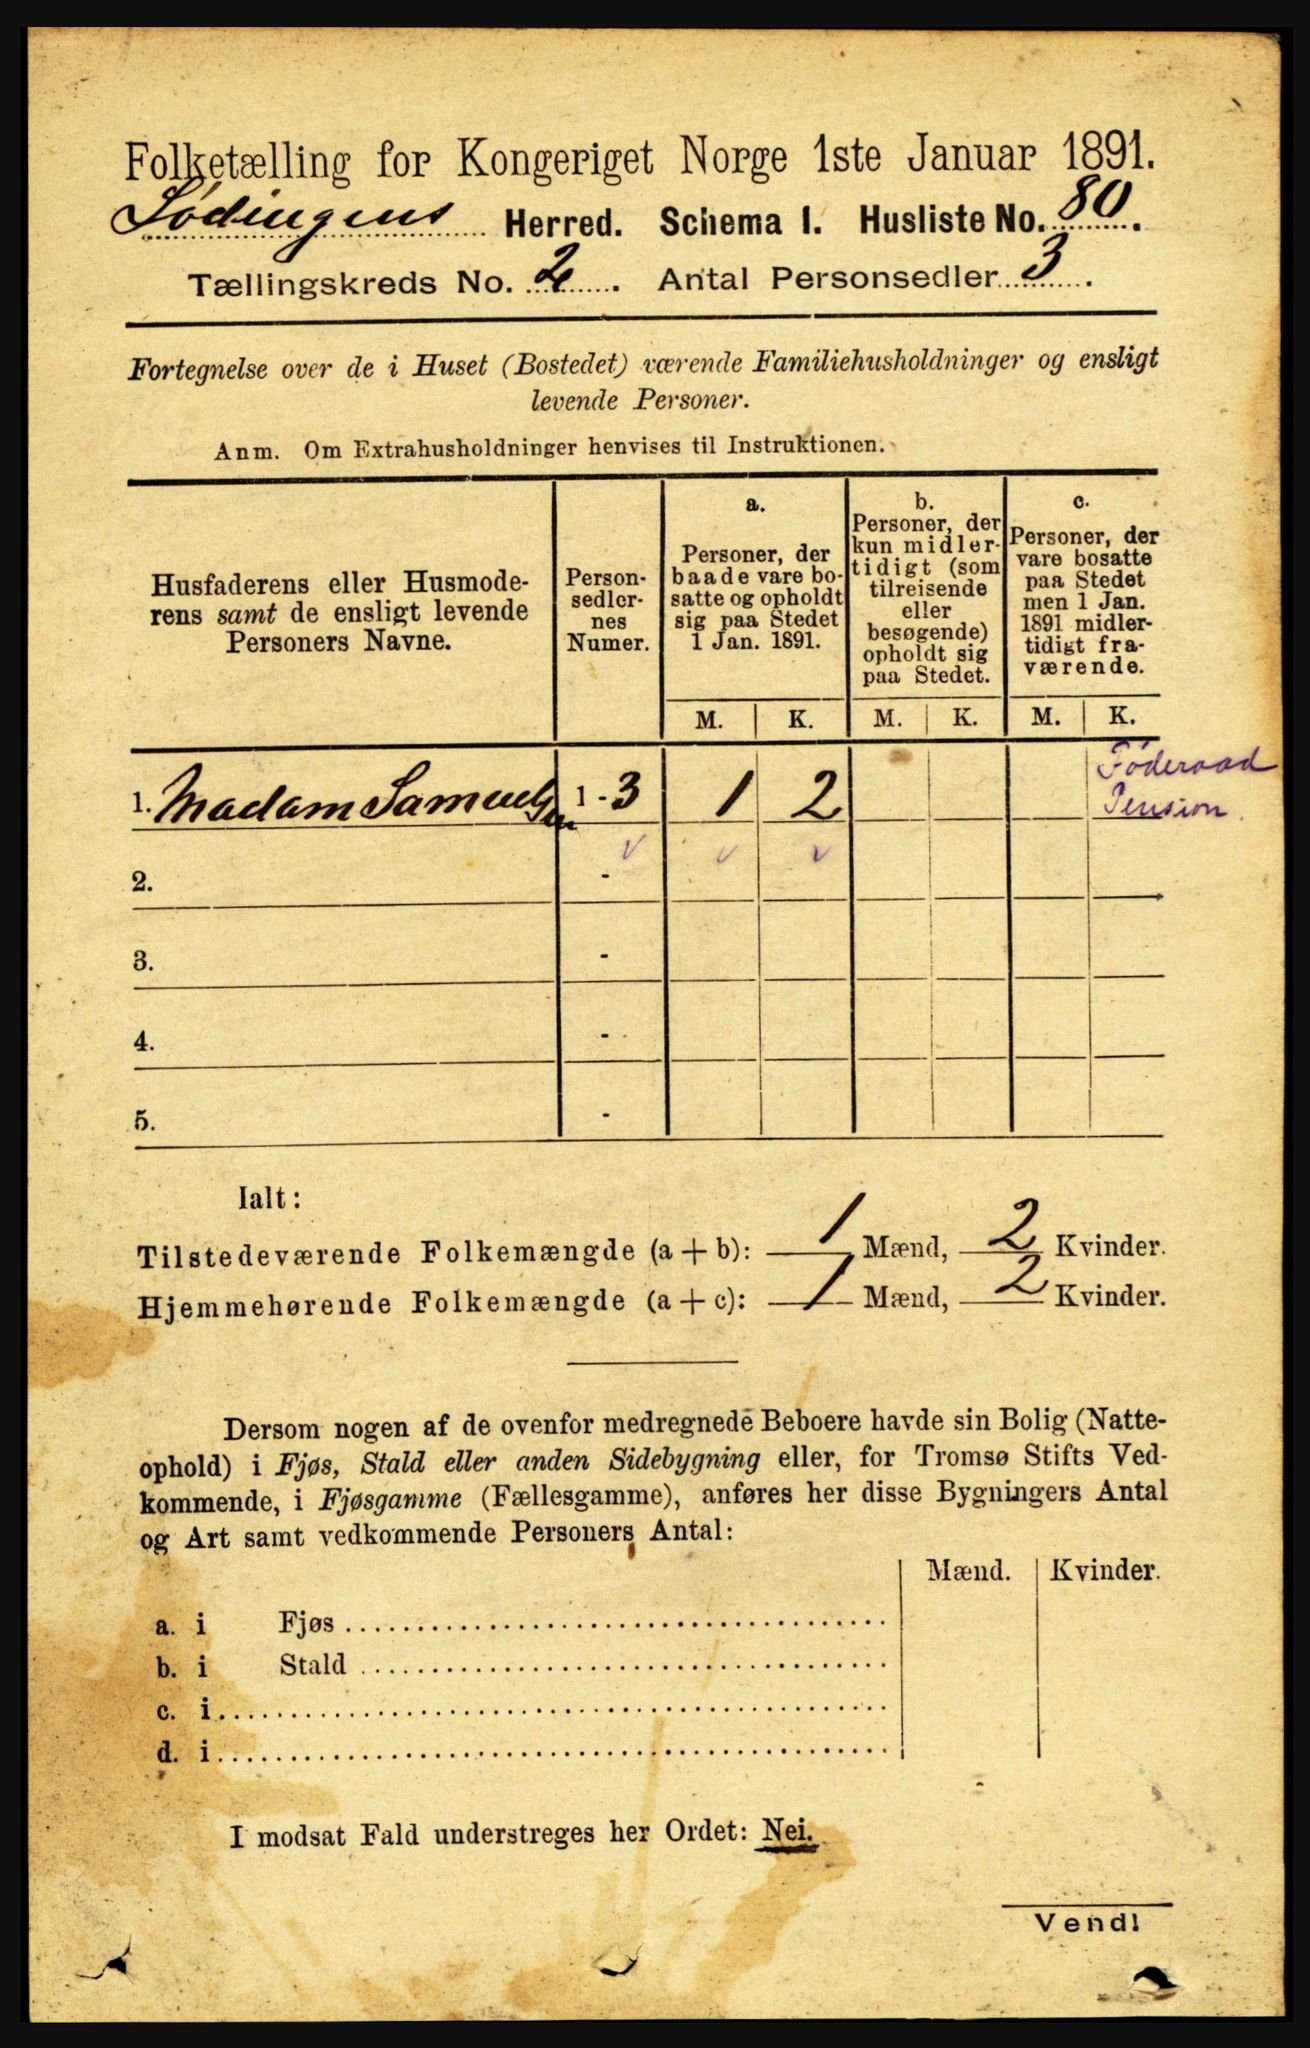 Folketælling for Kongeriget Norge 1ste Januar 1891.
Lødingens Herred. Schema I. Husliste No. 80.
Tællingskreds No. 2. Antal Personsedler 3.
Fortegnelse over de i Huset (Bostedet) værende Familiehusholdninger og ensligt
levende Personer.
Anm. Om Extrahusholdninger henvises til Instruktionen.
Husfaderens eller Husmode-
rens samt de ensligt levende
Personers Navne.
Person-
sedler-
nes
Numer.
a.
Personer, der
baade vare bo-
satte og opholdt
sig paa Stedet
1 Jan. 1891.
b.
Personer, der
kun midler-
tidigt (som
tilreisende
eller
besøgende)
opholdt sig
paa Stedet.
c.
Personer, der
vare bosatte
paa Stedet
men 1 Jan.
1891 midler-
tidigt fra-
værende.
M. K. M. K. M. K.
Føderaad
1. Madam Samuelsen 1 - 3 1 2 Pension
2. -
3. -
4. -
5. -
Ialt:
Tilstedeværende Folkemængde (a + b): 1 Mænd, 2 Kvinder.
Hjemmehørende Folkemængde (a + c): 1 Mænd, 2 Kvinder.
Dersom nogen af de ovenfor medregnede Beboere havde sin Bolig (Natte-
ophold) i Fjøs, Stald eller anden Sidebygning eller, for Tromsø Stifts Ved-
kommende, i Fjøsgamme (Fællesgamme), anføres her disse Bygningers Antal
og Art samt vedkommende Personers Antal:
Mænd. Kvinder.
a. i Fjøs
b. i Stald
c. i
d. i
I modsat Fald understreges her Ordet: Nei.
Vend!